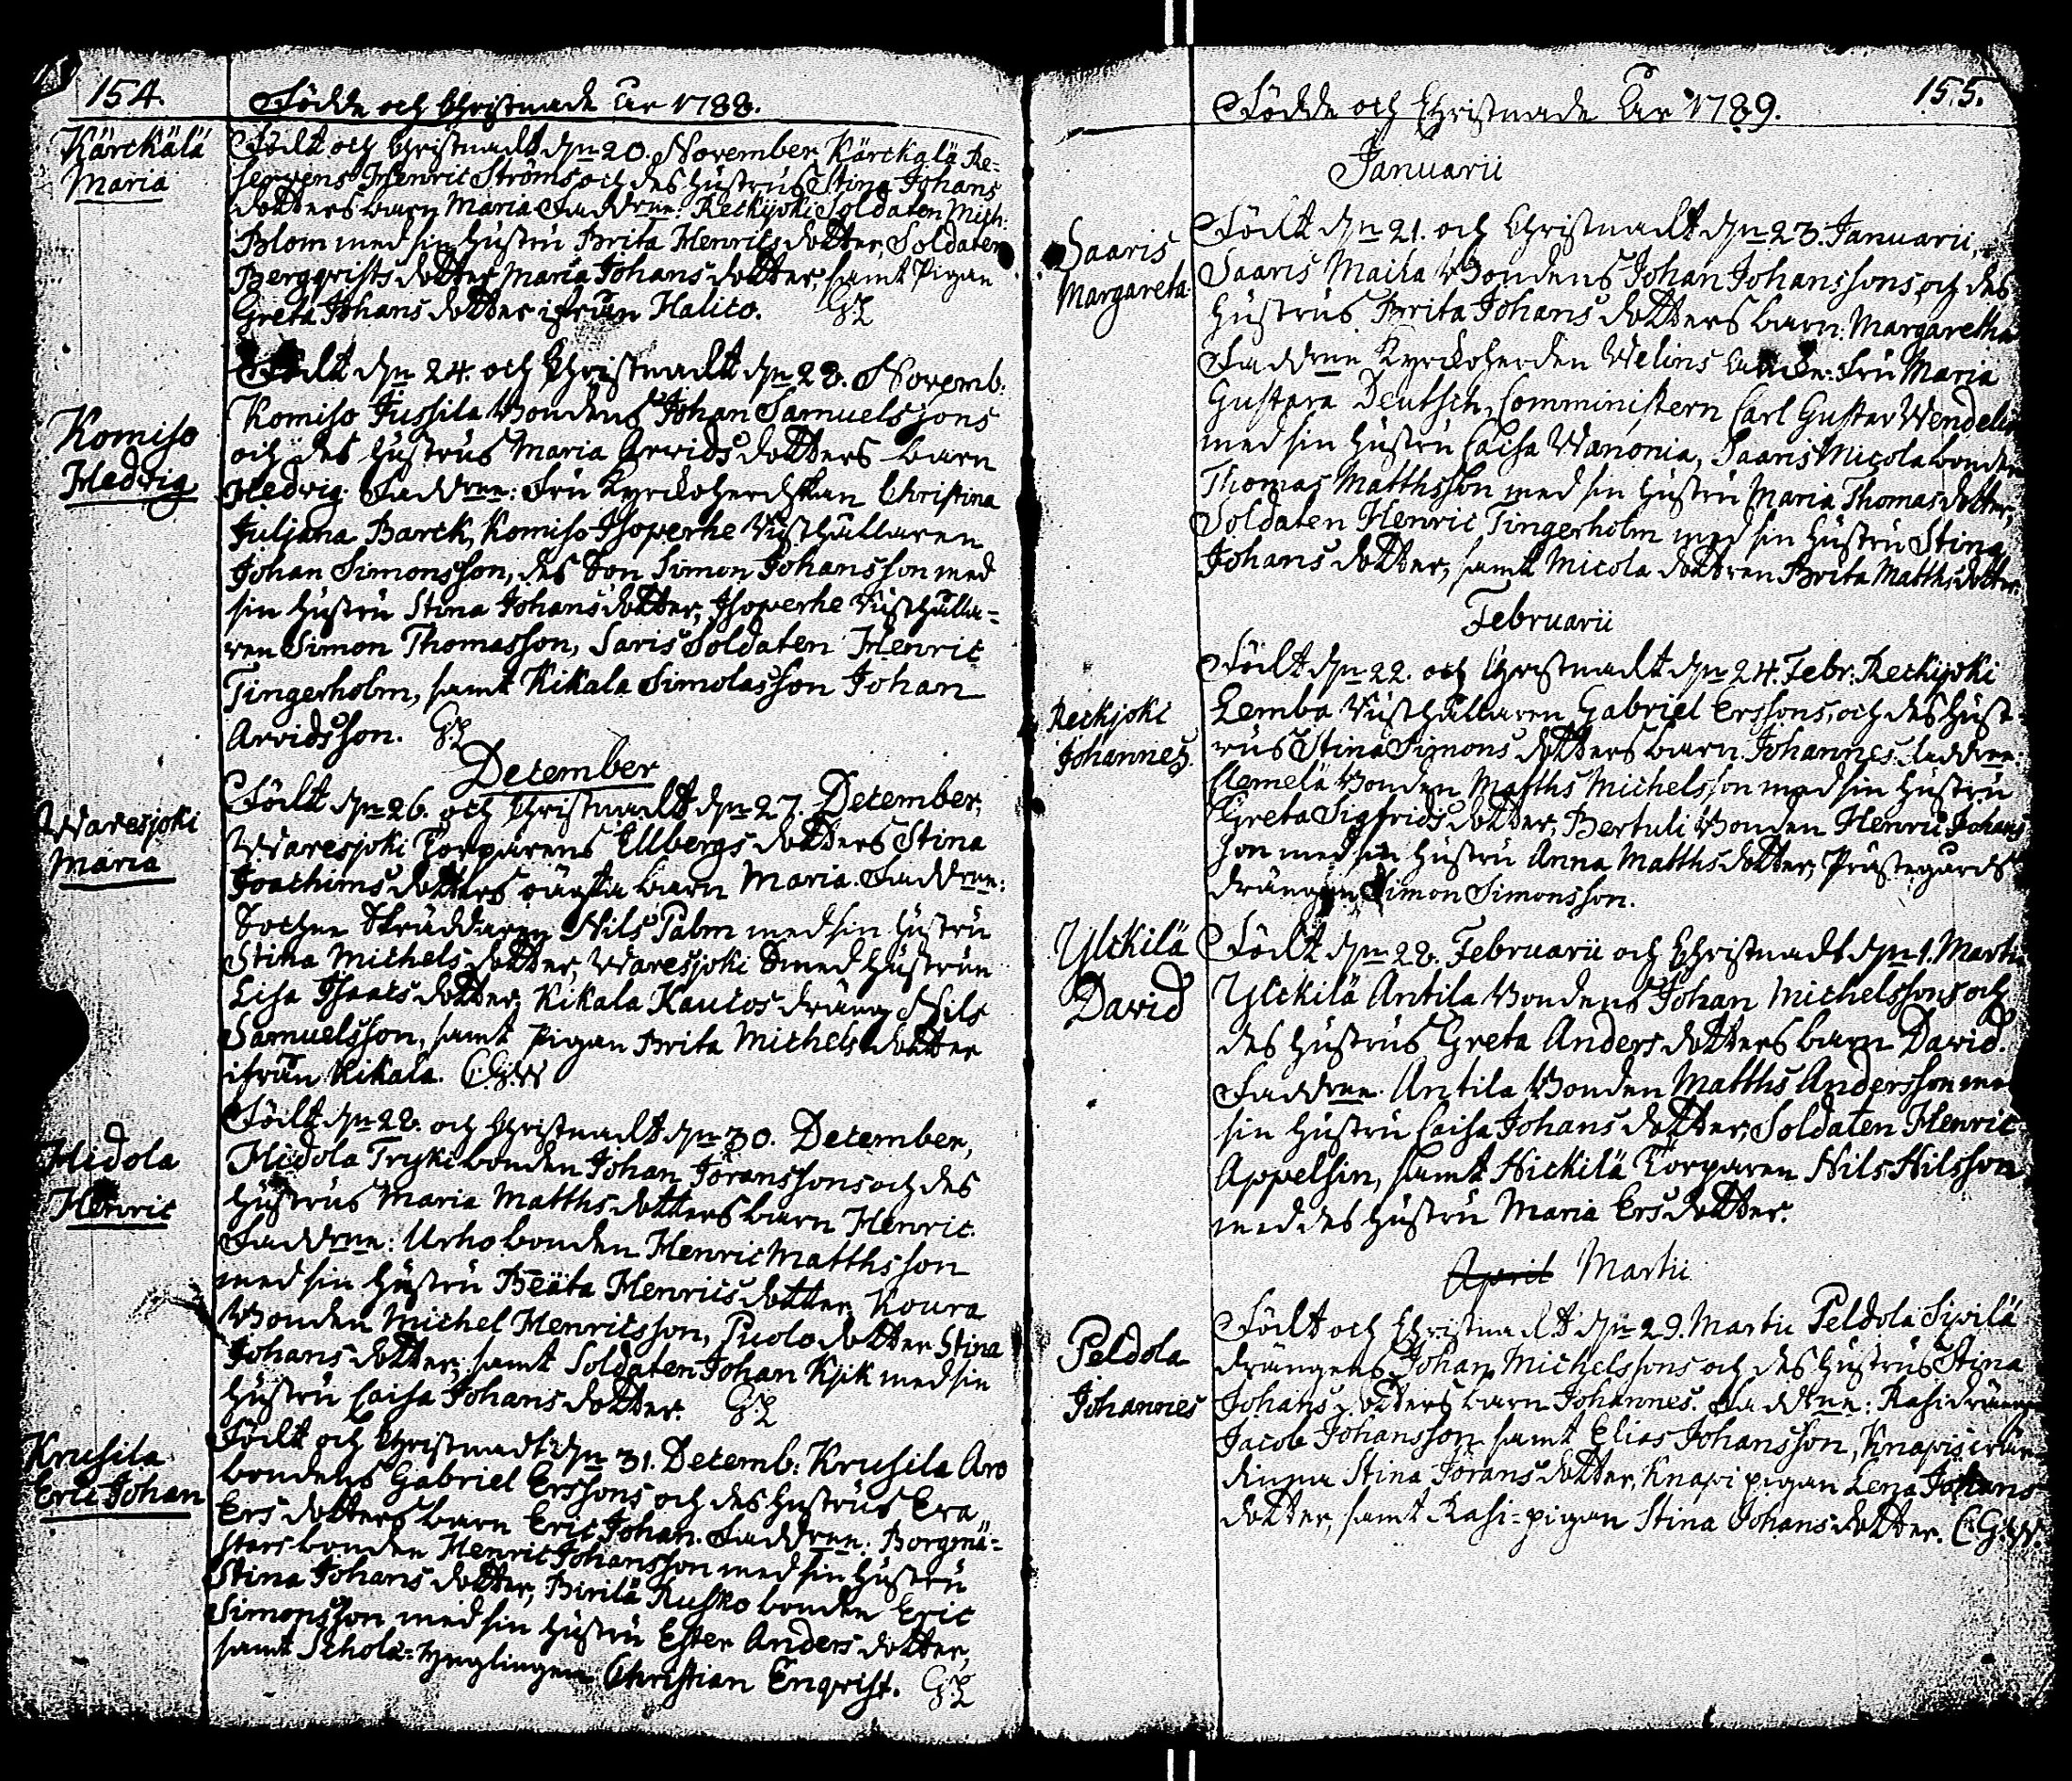 154.
Födde och Christnade År 1788.
Kärckälä
Maria
Födt och Christnadt dn 20. November Kärckälä Re-
servens Henric Ströms och des Hustrus Stina Johans
dotters barn Maria Faddrne: Reckijoki Soldaten Mich:
Blom med sin Hustru Brita Henrics dotter, Soldaten
Bergqvists dotter Maria Johans dotter, samt Pigan
Greta Johans dotter ifrån Halico. GL
Komiso
Hedvig
Födt dn 24. och Christnadt dn 28. Novemb:
Komiso Jussila Bondens Johan Samuelssons
och des Hustrus Maria Arvids dotters barn
Hedvig. Faddrne: Fru Kyrckoherdskan Christina
Juljana Barck, Komiso Isoperhe Rusthållaren
Johan Simonsson, des Son Simon Johansson med
sin Hustru Stina Johans dotter, Isoperhe Rusthålla-
ren Simon Thomasson, Saris Soldaten Henric
Tingerholm, samt Kikala Simolasson Johan
Arvidsson. GL
December
Waresjoki
Maria
Födt dn 26. och Christnadt dn 27. December,
Waresjoki Torparens Ellbergs dotters Stina
Joachims dotters oägta barn Maria. Faddrne:
Sochne Skräddaren Nils Palm med sin Hustru
Stina Michels dotter, Waresjoki Smed Hustrun
Lisa Isaacs dotter, Kikala Kaucos dräng Nils
Samuelsson, samt Pigan Brita Michels dotter
ifrån Kikala. C.G.W
Hidola
Henric
Födt dn 28. och Christnadt dn 30. December,
Hidola Tryki bonden Johan Jöranssons och des
Hustrus Maria Matths dotters barn Henric.
Faddrne: Urho bonden Henric Matthsson
med sin Hustru Beata Henrics dotter, Koura
Bonden Michel Henricsson, Puolo dotter Stina
Johans dotter, samt Soldaten Johan Kjik med sin
Hustru Caisa Johans dotter. GL
Krusila
Eric Johan
Födt och Christnadt dn 31. Decemb: Krusila Aro
bondens Gabriel Erssons och des Hustrus Eva
Ers dotters barn Eric Johan. Faddrne: Borgmä-
stars bonden Henric Johansson med sin Hustru
Stina Johans dotter, Pirilä Rusko bonden Eric
Simonsson med sin Hustru Ester Anders dotter,
samt Schola-Ynglingen Christian Enqvist. GL
155.
Födde och Christnade År 1789.
Januarii
Saaris
Margareta
Födt dn 21. och Christnadt dn 23. Januarii,
Saaris Maila Bondens Johan Johanssons och des
Hustrus Brita Johans dotters barn: Margaretha
Faddrne Kyrckoherden Welins Fru Maria
Gustava Deutsch, Comministern Carl Gustav Wendelin
med sin Hustru Caisa Wanonia, Saaris Micola bonden
Thomas Matthsson med sin Hustru Maria Thomas dotter,
Soldaten Henric Tingerholm med sin Hustru Stina
Johans dotter, samt Micola dottren Brita Matths dotter.
Februarii
Reckjoki
Johannes.
Födt dn 22. och Christnadt dn 24. Febr: Reckijoki
Lemba Rusthållaren Gabriel Erssons, och des Hust-
rus Stina Simons dotters barn Johannes. Faddrne:
Clemelä Bonden Matths Michelsson med sin Hustru
Greta Sigfrids dotter, Bertuli Bonden Henric Johans
son med sin Hustru Anna Matths dotter, Prästegårds
drängen Simon Simonsson.
Ylckilä
David
Födt dn 28. Februarii och Christnadt dn 1. Martii
Ylckilä Antila Bondens Johan Michelssons och
des Hustrus Greta Anders dotters barn David.
Faddrne Antila Bonden Matths Andersson med
sin Hustru Caisa Johans dotter, Soldaten Henric
Appelsin, samt Hickilä Torparen Nils Nilsson
med des Hustru Maria Ers dotter.
April Martii
Peldola
Johannes
Födt och Christnadt dn 29. Martii Peldola Sipilä
drängens Johan Michelssons och des Hustrus Stina
Johans dotters barn Johannes. Faddrne: Kasi drängen
Jacob Johansson samt Elias Johansson, Knapis
Stina Jörans dotter, Knapi pigan Lena Johans
dotter, samt Kasi-pigan Stina Johans dotter. C.G.W.